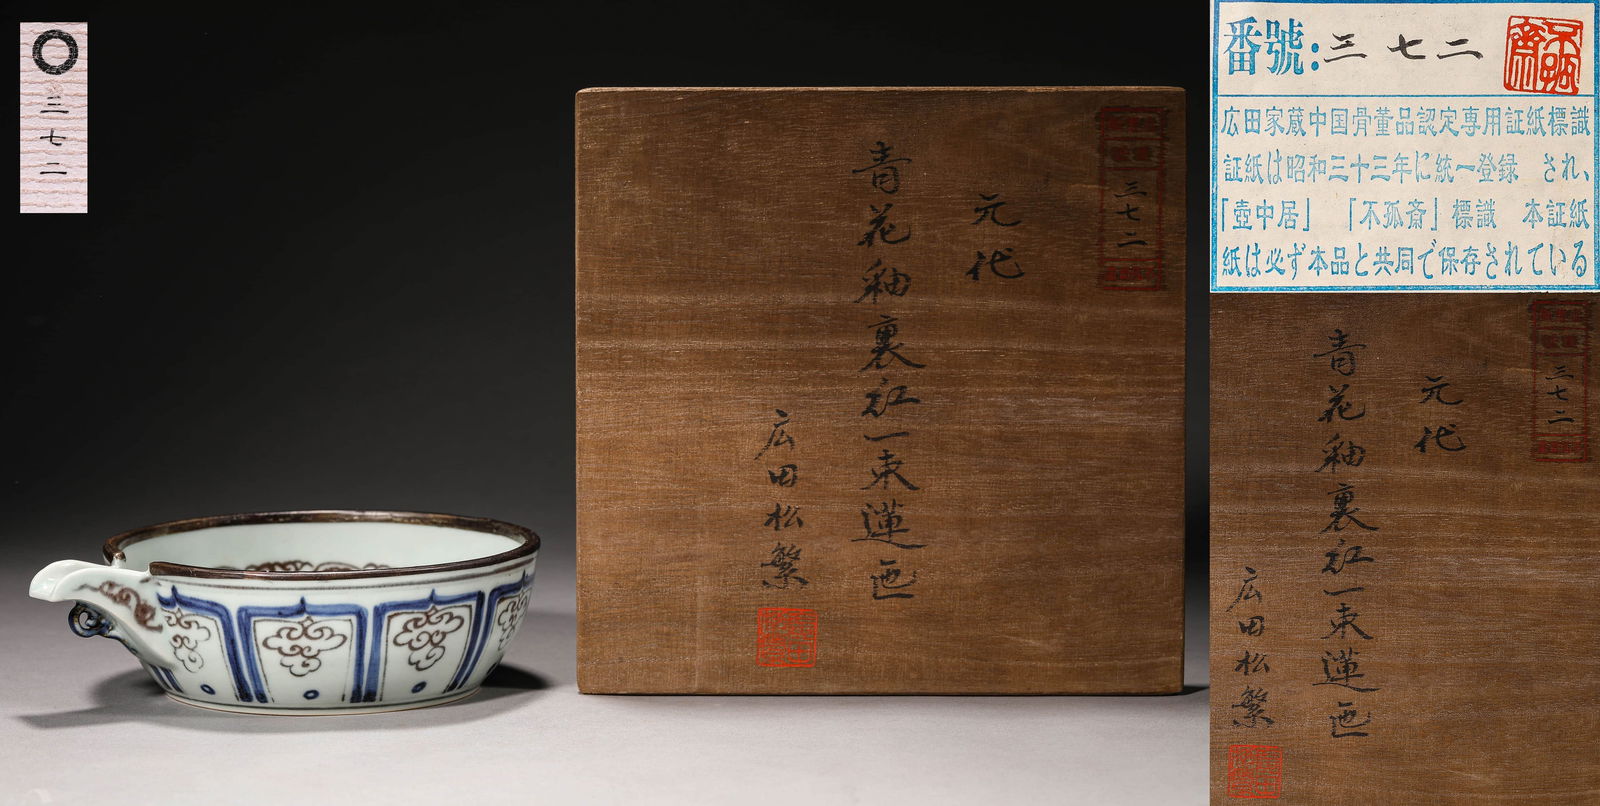 三七二
元代
青花釉裏红一束蓮匜
広田松繁
三七二
番號:三七二
広田家蔵中国骨董品認定専用証紙標識
証紙は昭和三十三年に統一登録 され、
「壺中居」 「不孤斎」標識 本証紙
紙は必ず本品と共同で保存されている
不孤齋
三七二
元代
青花釉裏红一束蓮匜
広田松繁